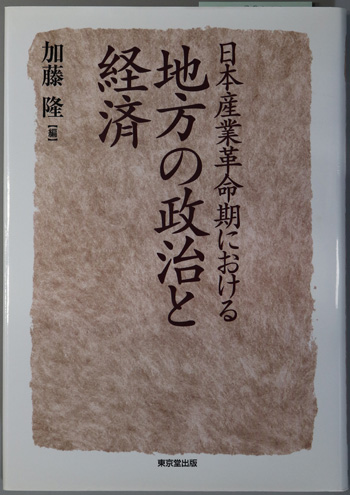 日本産業革命期における
地方の政治と
経済
加藤 隆【編】
東京堂出版